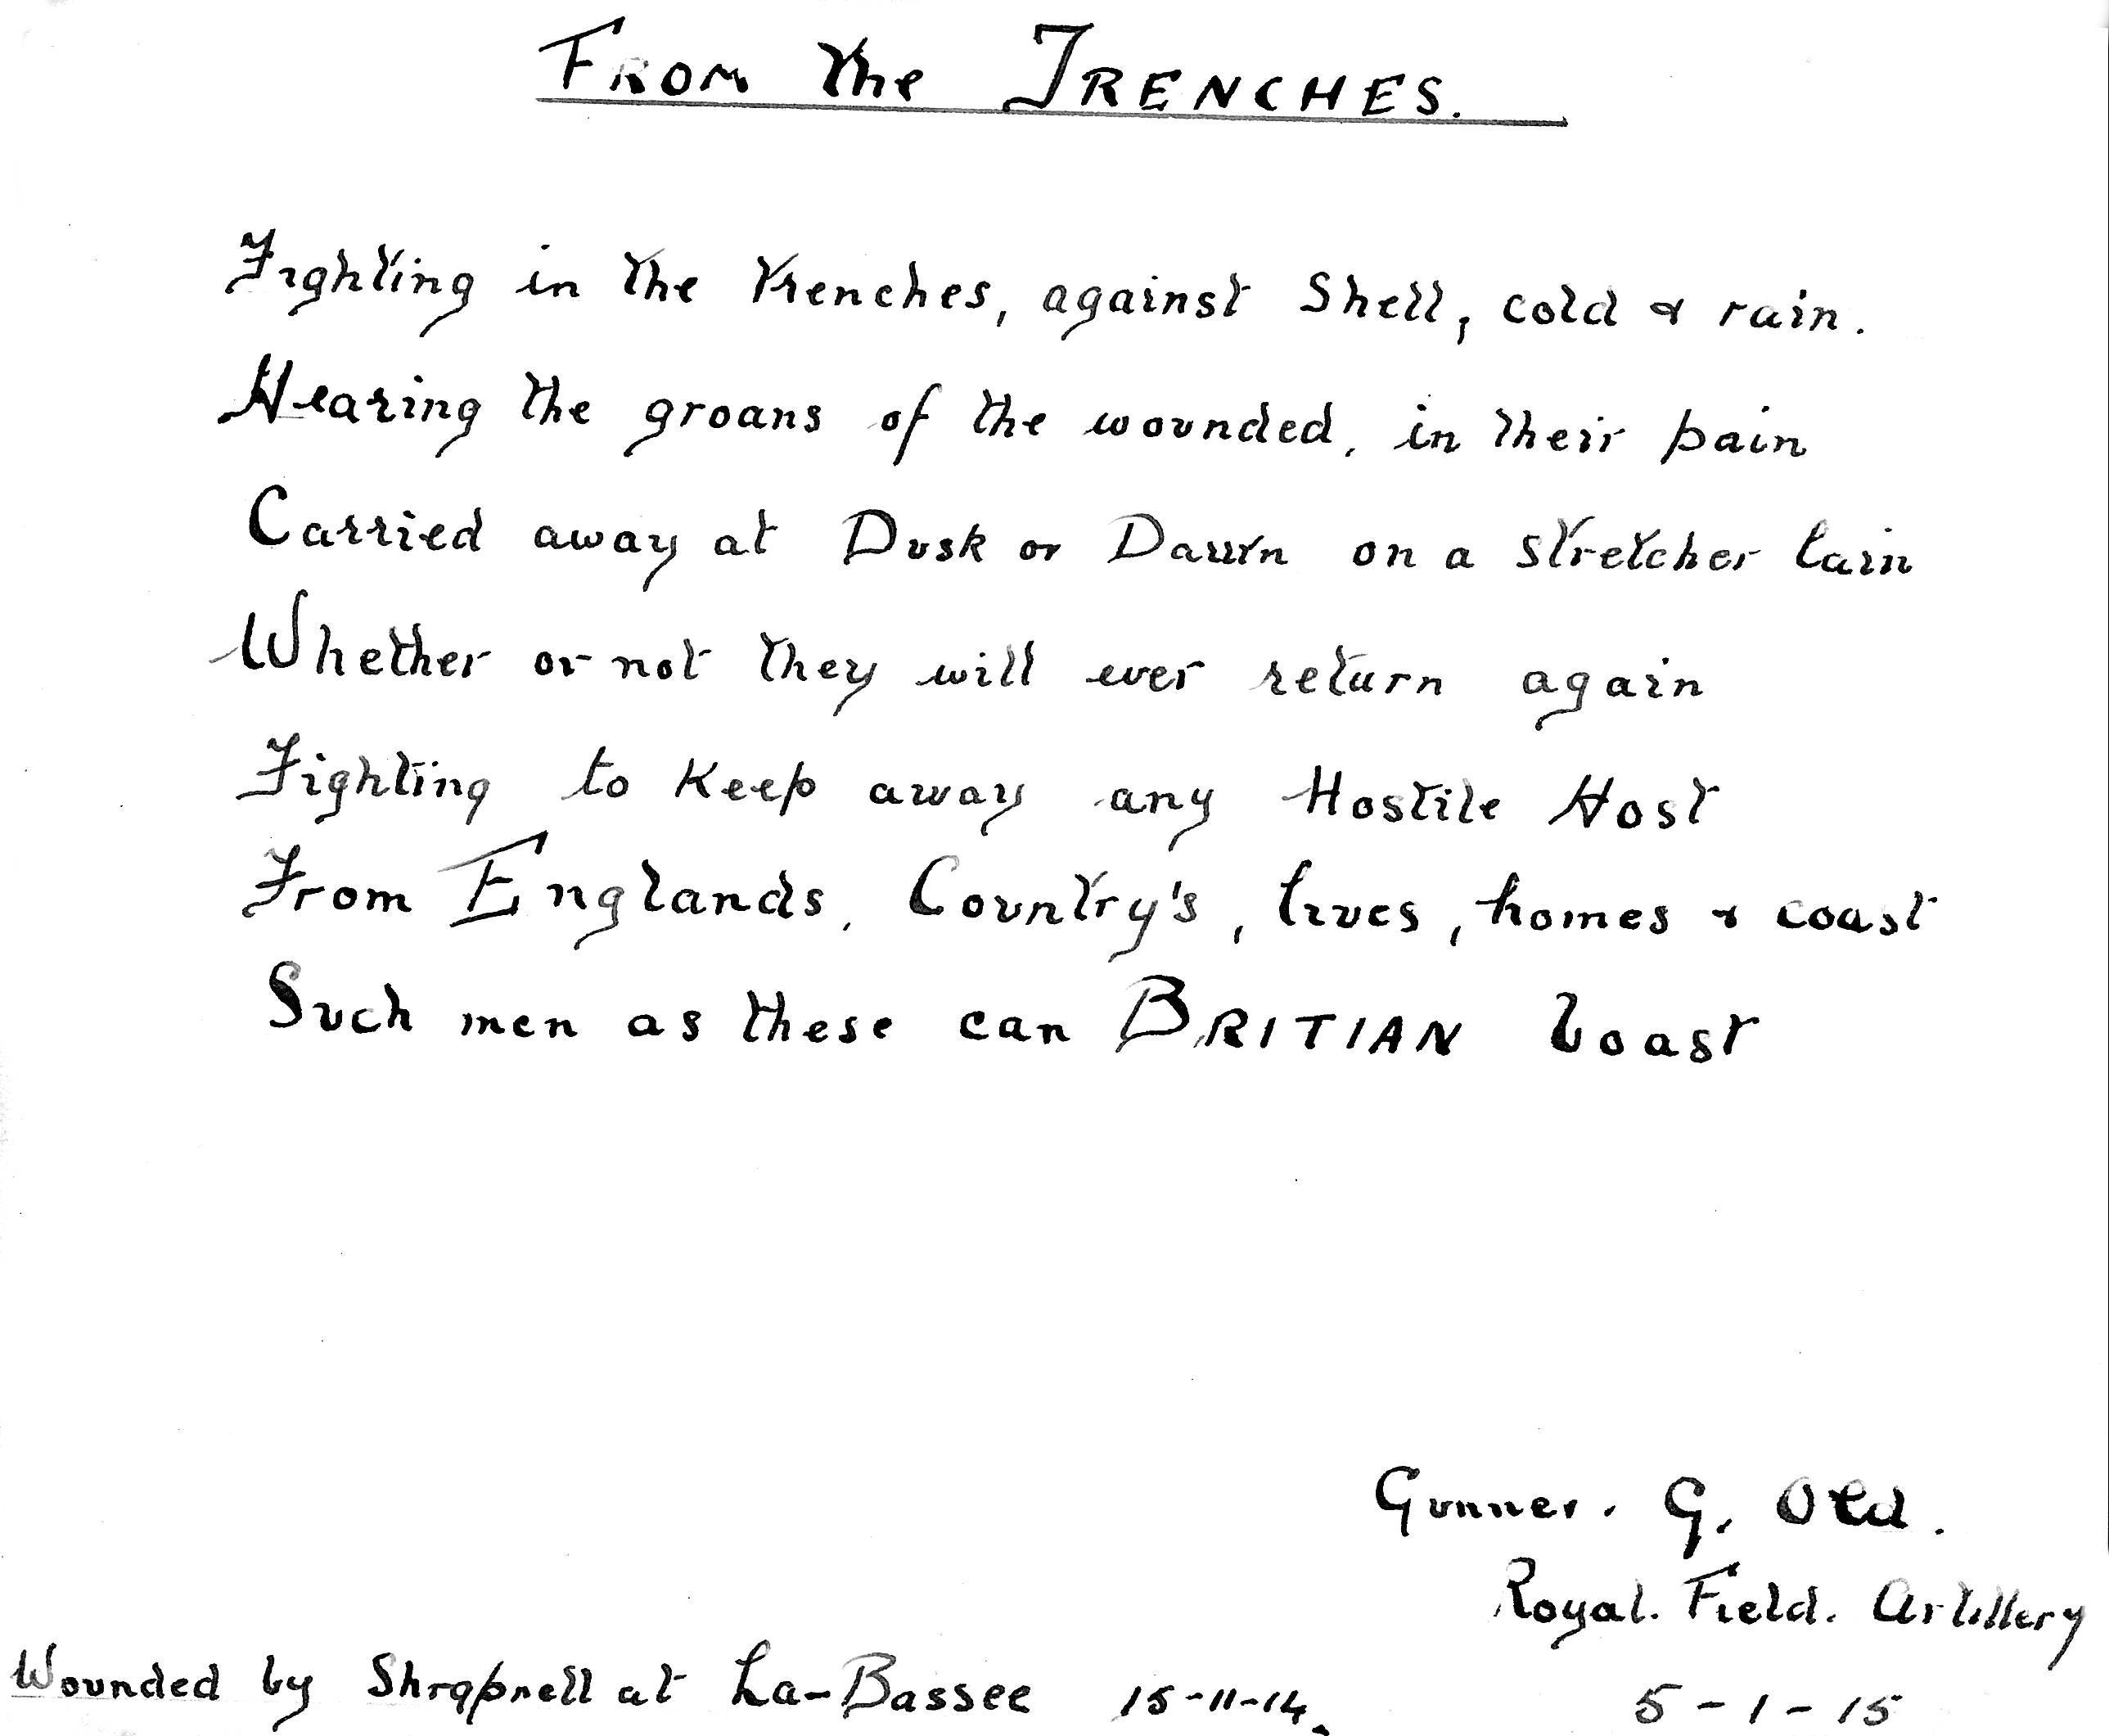 FROM the TRENCHES.
Fighting in the trenches, against Shell, cold & rain.
Hearing the groans of the wounded, in their pain
Carried away at Dusk or Dawn on a stretcher lain
Whether or not they will ever return again
Fighting to Keep away any Hostile Host
From Englands, Country's, lives, homes & coast
Such men as these can BRITIAN boast
Gunner. G. Old.
Royal. Field. Artillery
Wounded by Shrapnell at La-Bassee 15-11-14. 5-1-15